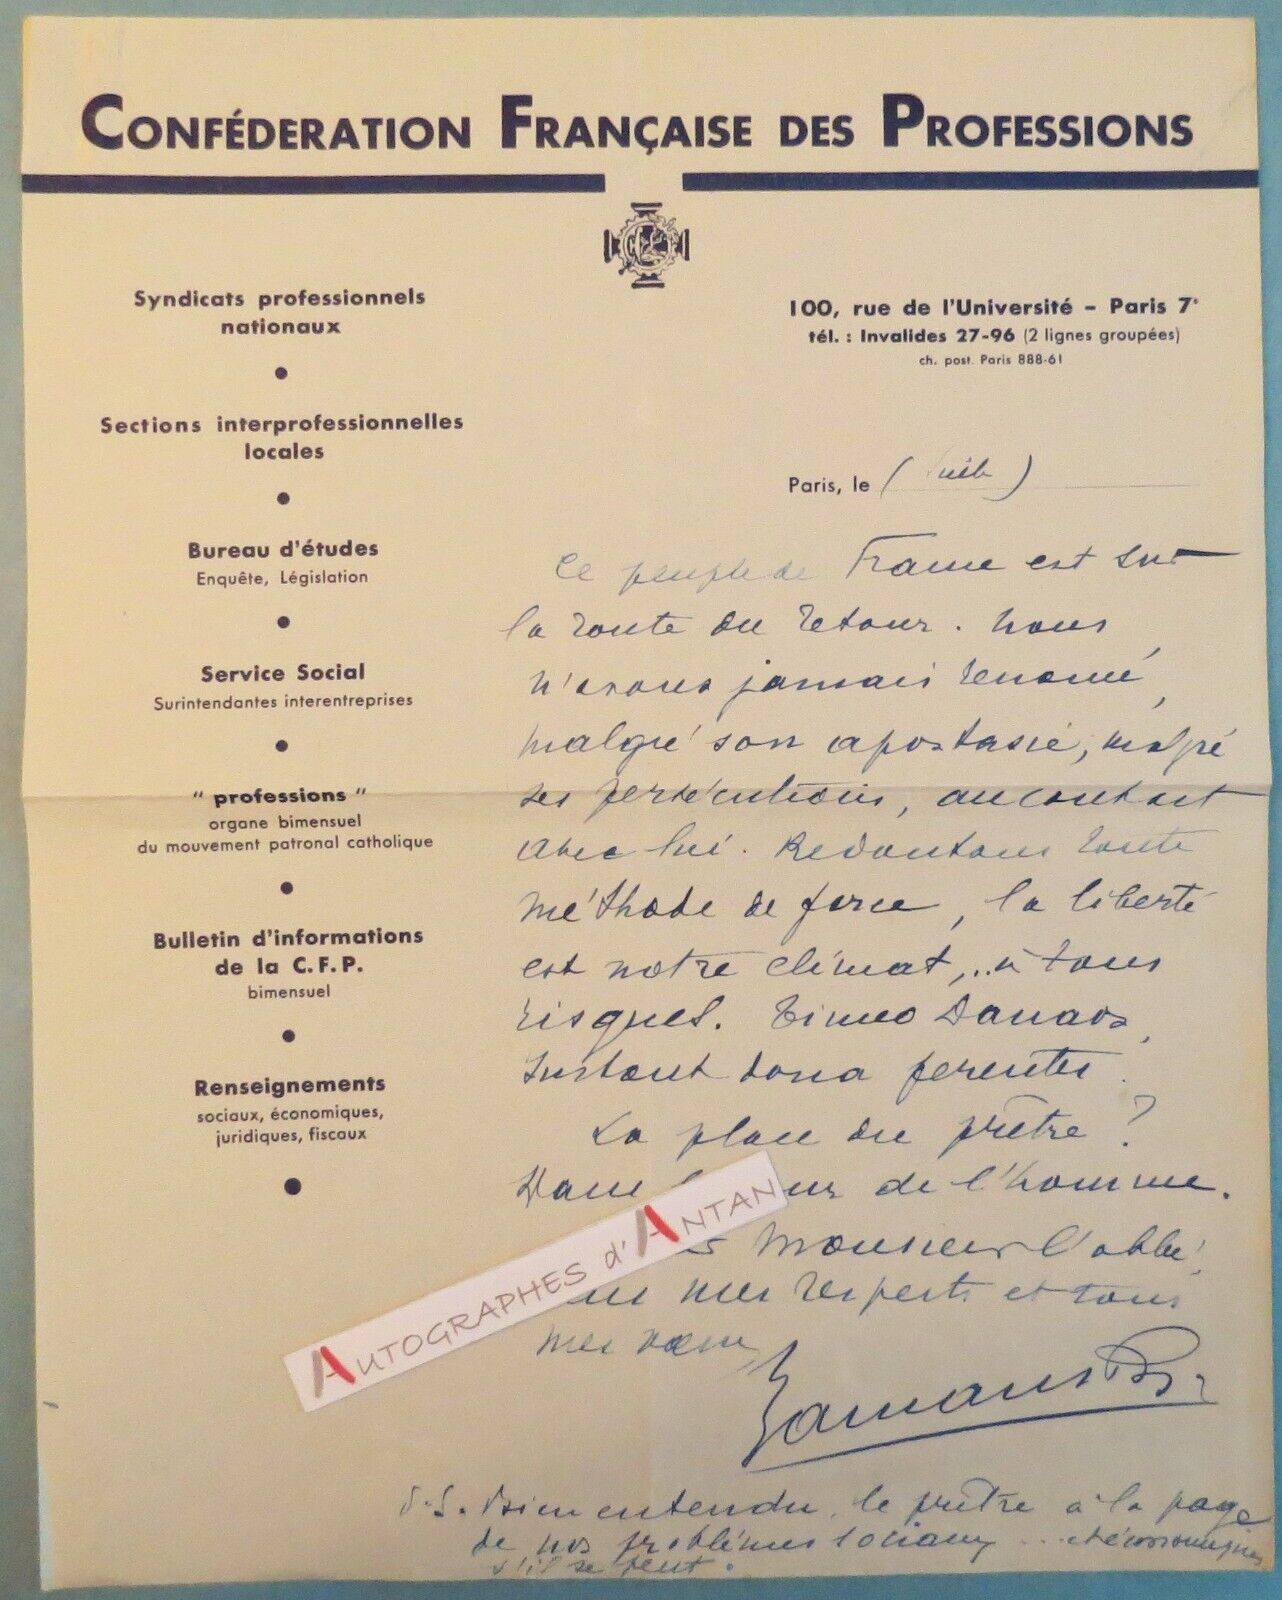 CONFÉDERATION FRANÇAISE DES PROFESSIONS
Syndicats professionnels
nationaux
Sections interprofessionnelles
locales
Bureau d'études
Enquête, Législation
Service Social
Surintendantes interentreprises
" professions "
organe bimensuel
du mouvement patronal catholique
Bulletin d'informations
de la C.F.P.
bimensuel
Renseignements
sociaux, économiques,
juridiques, fiscaux
100, rue de l'Université - Paris 7e
tél. : Invalides 27-96 (2 lignes groupées)
ch. post. Paris 888-61
Paris, le (suite)
Le peuple de France est sur
la route du retour. Nous
n'avons jamais renoncé,
malgré son apostasie, malgré
ses persécutions, au contact
avec lui. Redoutons toute
méthode de force, la liberté
est notre climat, .. à tous
risques. Timeo Danaos,
surtout dona ferentes.
La place du prêtre ?
Dans de l'homme.
Monsieur l'abbé,
mes respects et tous
mes vœux,
AUTOGRAPHES d'ANTAN
P.S. Bien entendu, le prêtre à la page
de nos problèmes sociaux ... et économiques
s'il se peut.